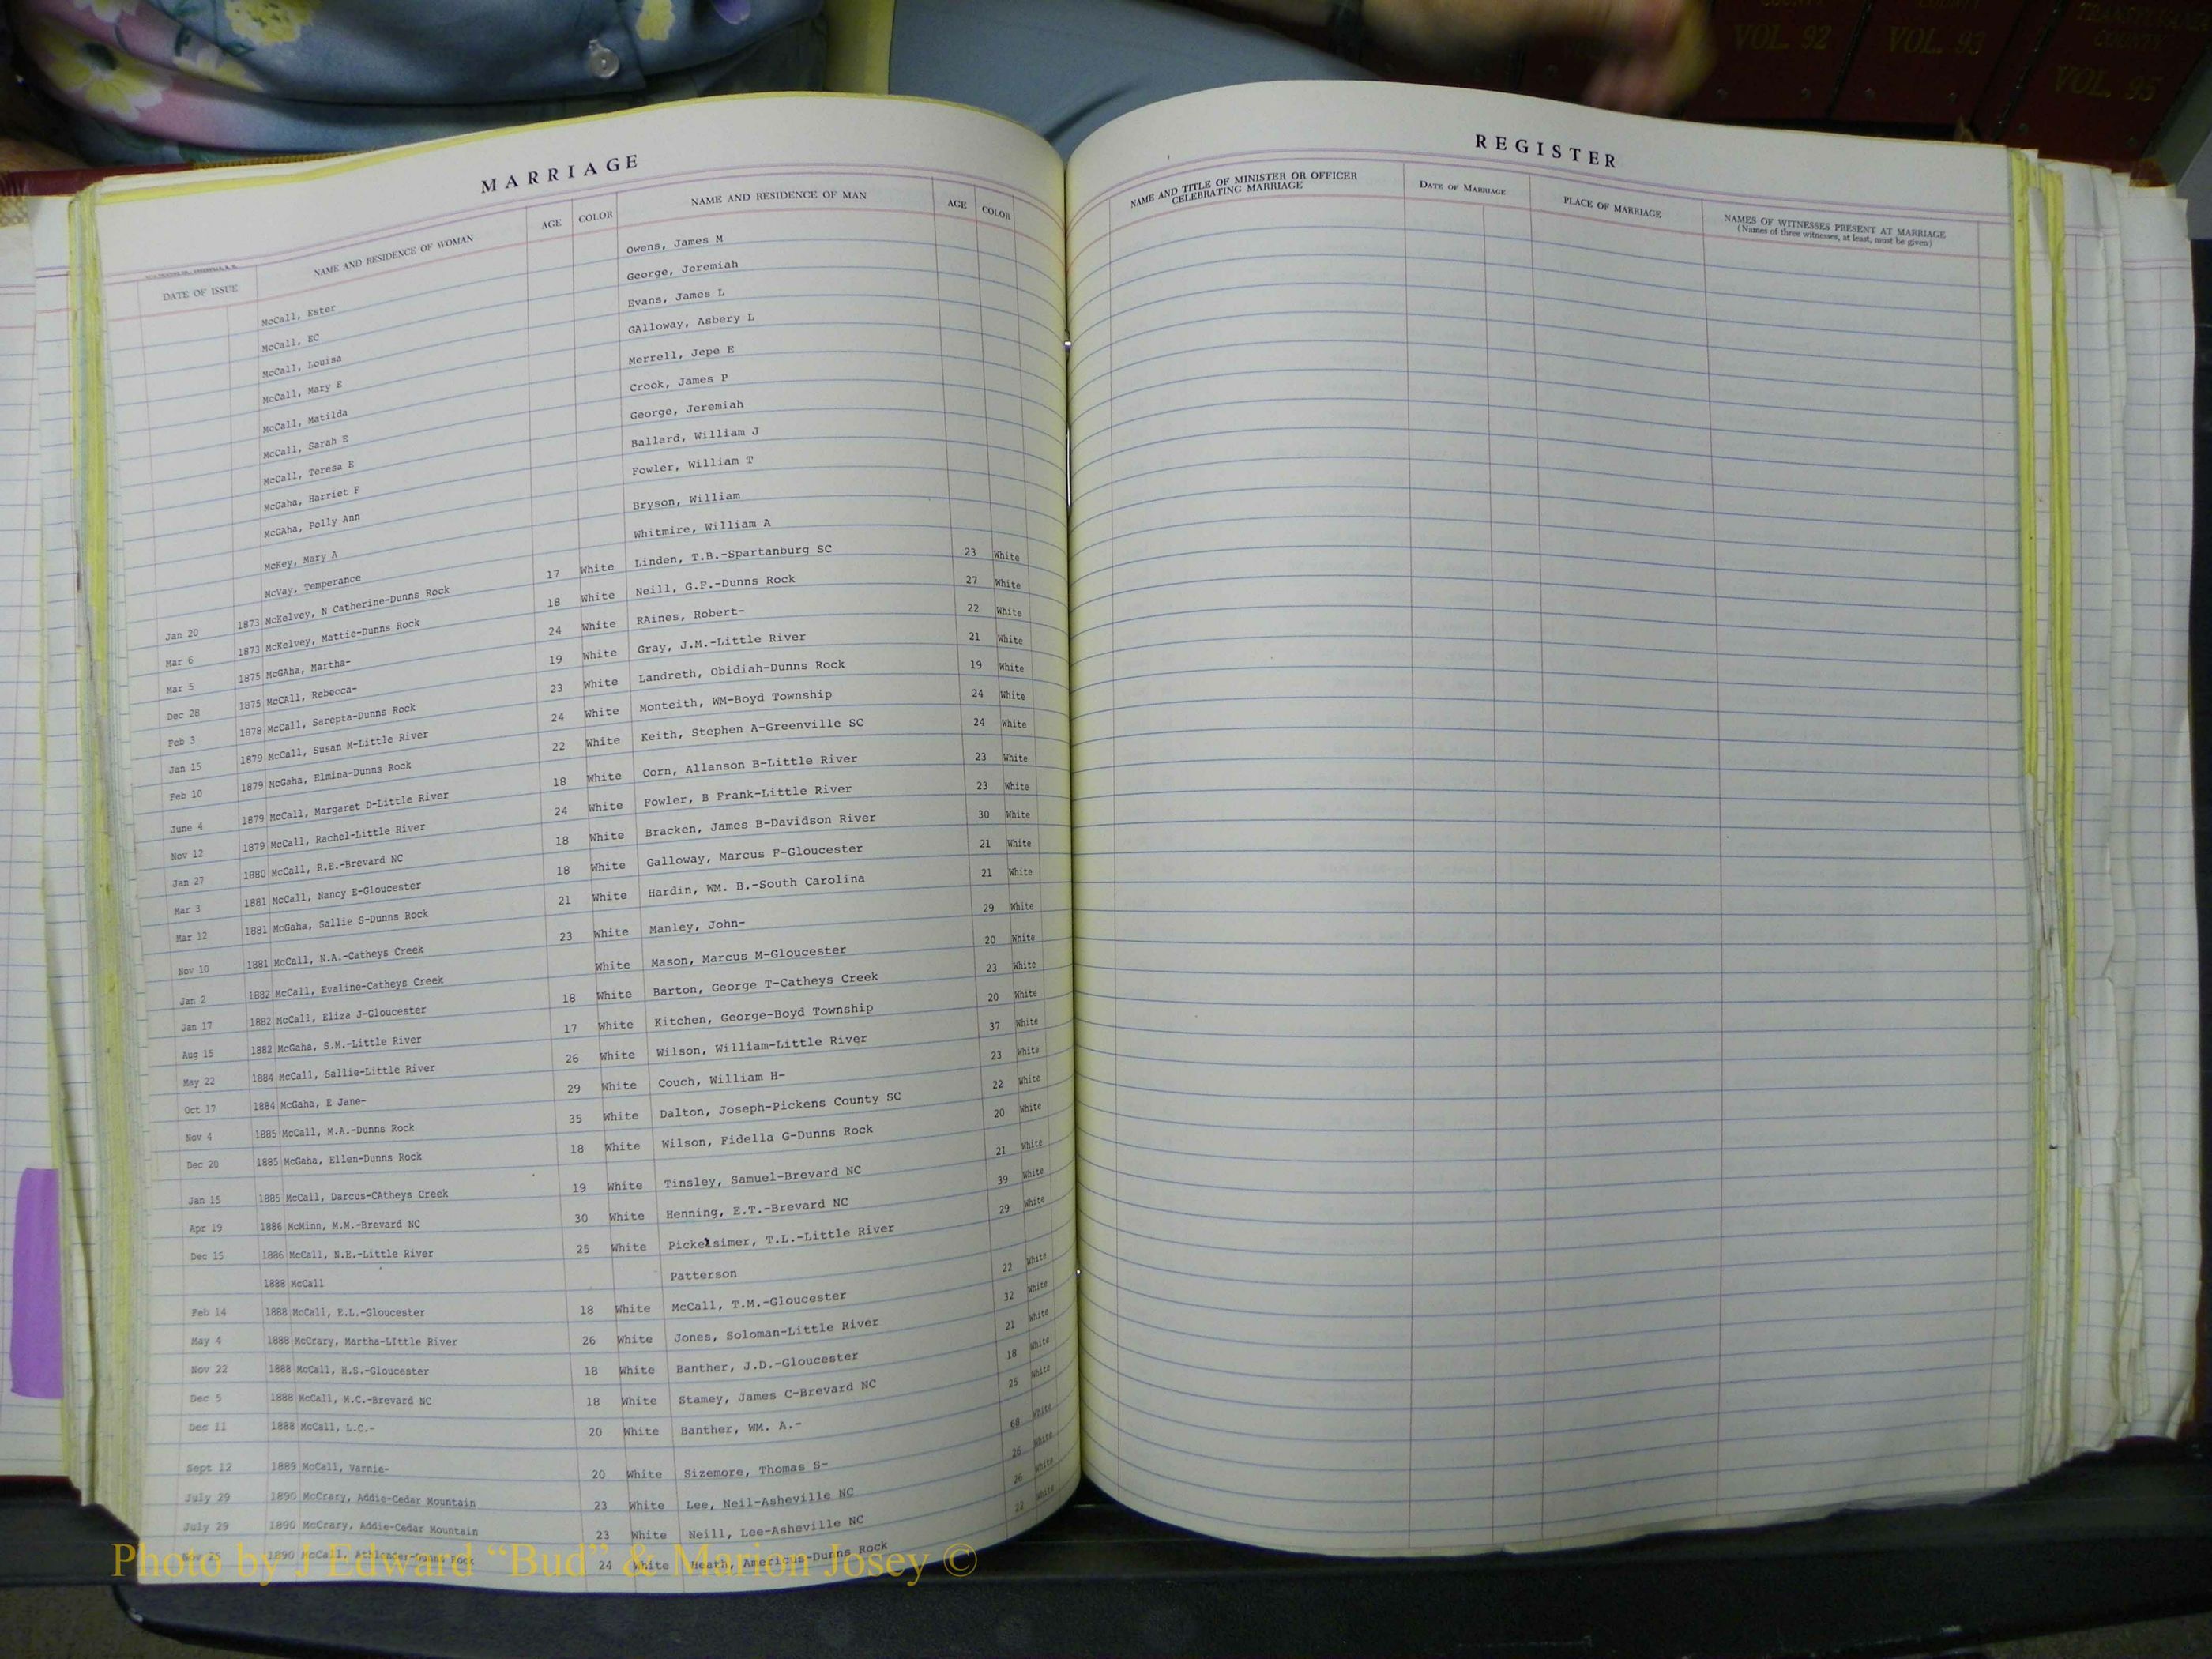 COUNTY
VOL. 92
COUNTY
VOL. 93
TRANSYLVANIA
COUNTY
VOL. 95
MARRIAGE
DATE OF ISSUE NAME AND RESIDENCE OF WOMAN AGE COLOR NAME AND RESIDENCE OF MAN AGE COLOR
McCall, Ester Owens, James M
McCall, EC George, Jeremiah
McCall, Louisa Evans, James L
McCall, Mary E GAlloway, Asbery L
McCall, Matilda Merrell, Jepe E
McCall, Sarah E Crook, James P
McCall, Teresa E George, Jeremiah
McGaha, Harriet F Ballard, William J
McGAha, Polly Ann Fowler, William T
McKey, Mary A Bryson, William
McVay, Temperance Whitmire, William A
Jan 20 1873 McKelvey, N Catherine-Dunns Rock 17 White Linden, T.B.-Spartanburg SC 23 White
Mar 6 1873 McKelvey, Mattie-Dunns Rock 18 White Neill, G.F.-Dunns Rock 27 White
Mar 5 1875 McGAha, Martha- 24 White RAines, Robert- 22 White
Dec 28 1875 McCAll, Rebecca- 19 White Gray, J.M.-Little River 21 White
Feb 3 1878 McCall, Sarepta-Dunns Rock 23 White Landreth, Obidiah-Dunns Rock 19 White
Jan 15 1879 McCall, Susan M-Little River 24 White Monteith, WM-Boyd Township 24 White
Feb 10 1879 McGaha, Elmina-Dunns Rock 22 White Keith, Stephen A-Greenville SC 24 White
June 4 1879 McCall, Margaret D-Little River 18 White Corn, Allanson B-Little River 23 White
Nov 12 1879 McCall, Rachel-Little River 24 White Fowler, B Frank-Little River 23 White
Jan 27 1880 McCall, R.E.-Brevard NC 18 White Bracken, James B-Davidson River 30 White
Mar 3 1881 McCall, Nancy E-Gloucester 18 White Galloway, Marcus F-Gloucester 21 White
Mar 12 1881 McGaha, Sallie S-Dunns Rock 21 White Hardin, WM. B.-South Carolina 21 White
Nov 10 1881 McCall, N.A.-Catheys Creek 23 White Manley, John- 29 White
Jan 2 1882 McCall, Evaline-Catheys Creek White Mason, Marcus M-Gloucester 20 White
Jan 17 1882 McCall, Eliza J-Gloucester 18 White Barton, George T-Catheys Creek 23 White
Aug 15 1882 McGaha, S.M.-Little River 17 White Kitchen, George-Boyd Township 20 White
May 22 1884 McCall, Sallie-Little River 26 White Wilson, William-Little River 37 White
Oct 17 1884 McGaha, E Jane- 29 White Couch, William H- 23 White
Nov 4 1885 McCall, M.A.-Dunns Rock 35 White Dalton, Joseph-Pickens County SC 22 White
Dec 20 1885 McGaha, Ellen-Dunns Rock 18 White Wilson, Fidella G-Dunns Rock 20 White
Jan 15 1885 McCall, Darcus-CAtheys Creek 19 White Tinsley, Samuel-Brevard NC 21 White
Apr 19 1886 McMinn, M.M.-Brevard NC 30 White Henning, E.T.-Brevard NC 39 White
Dec 15 1886 McCall, N.E.-Little River 25 White Pickelsimer, T.L.-Little River 29 White
1888 McCall Patterson
Feb 14 1888 McCall, E.L.-Gloucester 18 White McCall, T.M.-Gloucester 22 White
May 4 1888 McCrary, Martha-LIttle River 26 White Jones, Soloman-Little River 32 White
Nov 22 1888 McCall, H.S.-Gloucester 18 White Banther, J.D.-Gloucester 21 White
Dec 5 1888 McCall, M.C.-Brevard NC 18 White Stamey, James C-Brevard NC 18 White
Dec 11 1888 McCall, L.C.- 20 White Banther, WM. A.- 25 White
Sept 12 1889 McCall, Varnie- 20 White Sizemore, Thomas S- 68 White
July 29 1890 McCrary, Addie-Cedar Mountain 23 White Lee, Neil-Asheville NC 26 White
July 29 1890 McCrary, Addie-Cedar Mountain 23 White Neill, Lee-Asheville NC 26 White
Nov 25 1890 McCall, Athlender-Dunns Rock 24 White Heath, Americus-Dunns Rock 22 White
REGISTER
NAME AND TITLE OF MINISTER OR OFFICER CELEBRATING MARRIAGE DATE OF MARRIAGE PLACE OF MARRIAGE NAMES OF WITNESSES PRESENT AT MARRIAGE
(Names of three witnesses, at least, must be given)
Photo by J Edward “Bud” & Marion Josey ©